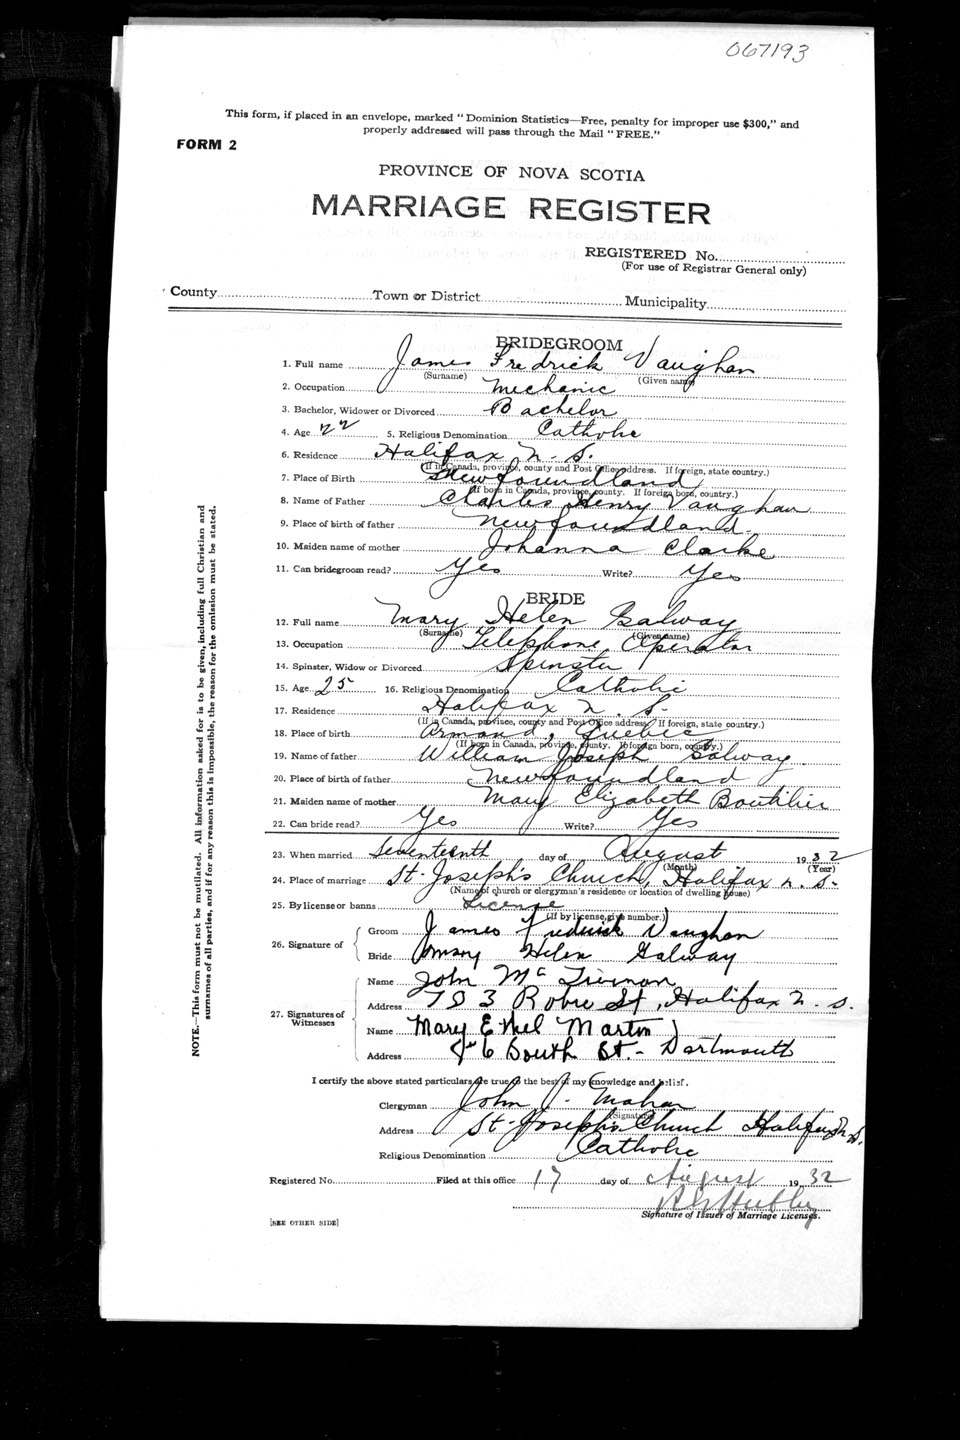 067193
This form, if placed in an envelope, marked "Dominion Statistics—Free, penalty for improper use $300," and
properly addressed will pass through the Mail "FREE."
FORM 2
PROVINCE OF NOVA SCOTIA
MARRIAGE REGISTER
REGISTERED No.
(For use of Registrar General only)
County Town or District Municipality
BRIDEGROOM
1. Full name James Fredrick Vaughan
(Surname) (Given name)
2. Occupation Mechanic
3. Bachelor, Widower or Divorced Bachelor
4. Age 22 5. Religious Denomination Catholic
6. Residence Halifax N. S.
(If in Canada, province, county and Post Office address. If foreign, state country.)
7. Place of Birth Newfoundland
(If born in Canada, province, county. If foreign born, country.)
8. Name of Father Charles Henry Vaughan
9. Place of birth of father Newfoundland
10. Maiden name of mother Johanna Clarke
11. Can bridegroom read? Yes Write? Yes
BRIDE
12. Full name Mary Helen Galway
(Surname) (Given name)
13. Occupation Telephone Operator
14. Spinster, Widow or Divorced Spinster
15. Age 25 16. Religious Denomination Catholic
17. Residence Halifax N. S.
(If in Canada, province, county and Post Office address. If foreign, state country.)
18. Place of birth Armand, Quebec
(If born in Canada, province, county. If foreign born, country.)
19. Name of father William Joseph Galway
20. Place of birth of father Newfoundland
21. Maiden name of mother Mary Elizabeth Boutilier
22. Can bride read? Yes Write? Yes
23. When married Seventeenth day of August 1932
(Month) (Year)
24. Place of marriage St. Joseph's Church, Halifax N. S.
(Name of church or clergyman's residence or location of dwelling house)
25. By license or banns License
(If by license, give number.)
26. Signature of
Groom James Fredrick Vaughan
Bride Mary Helen Galway
27. Signatures of Witnesses
Name John Mc
Address Robie St, Halifax N. S.
Name Mary Ethel Martin
Address 6 South St - Dartmouth
I certify the above stated particulars are true to the best of my knowledge and belief.
Clergyman John J. Mahan
(Signature)
Address St. Joseph's Church Halifax N.S.
Religious Denomination Catholic
Registered No. Filed at this office 17 day of August 1932
Signature of Issuer of Marriage Licenses.
[SEE OTHER SIDE]
NOTE.—This form must not be mutilated. All information asked for is to be given, including full Christian and
surnames of all parties, and if for any reason this is impossible, the reason for the omission must be stated.